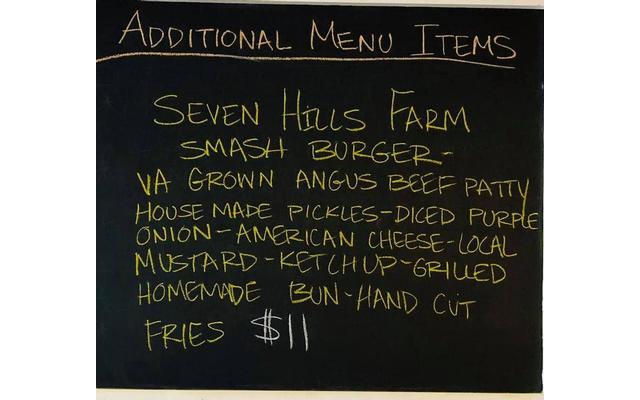 ADDITIONAL MENU ITEMS
SEVEN HILLS FARM
SMASH BURGER-
VA GROWN ANGUS BEEF PATTY
HOUSE MADE PICKLES-DICED PURPLE
ONION-AMERICAN CHEESE-LOCAL
MUSTARD-KETCHUP-GRILLED
HOMEMADE BUN-HAND CUT
FRIES $11